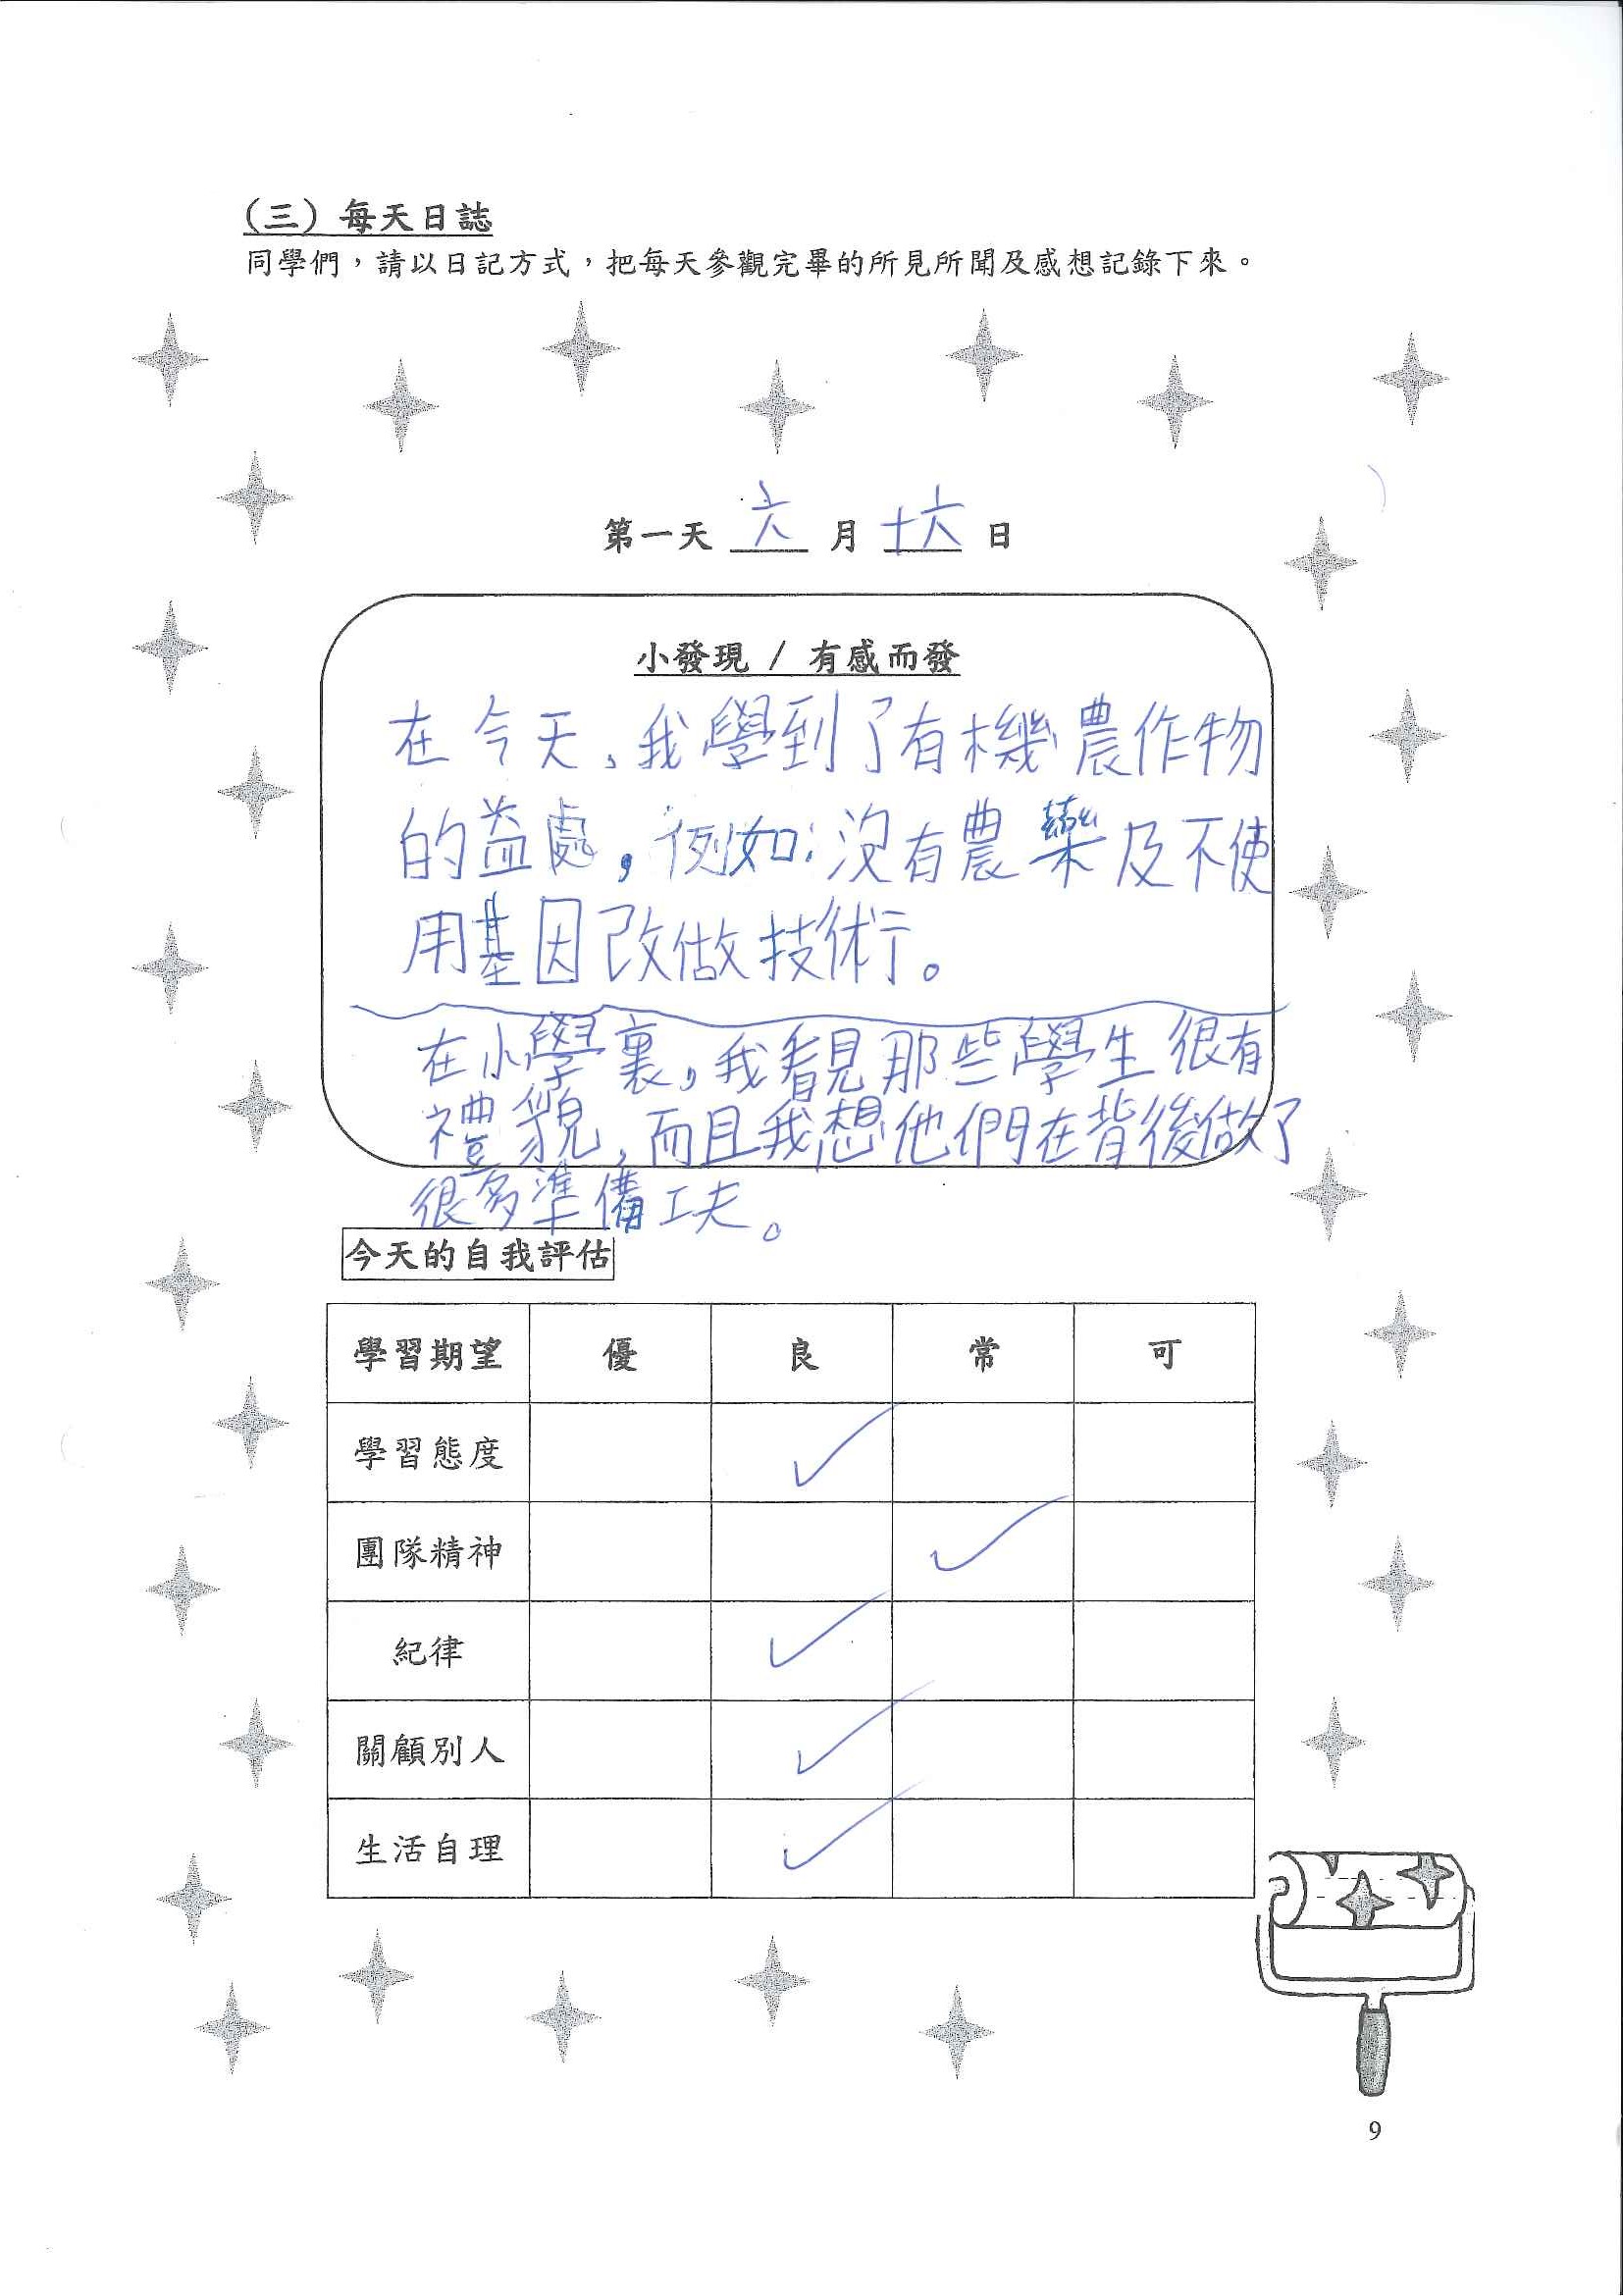 （三）每天日誌
同學們，請以日記方式，把每天參觀完畢的所見所聞及感想記錄下來。
第一天 六 月 十六 日
小發現 / 有感而發
在今天，我學到了有機農作物
的益處，例如：沒有農藥及不使
用基因改做技術。
在小學裏，我看見那些學生很有
禮貌，而且我想他們在背後做了
很多準備工夫。
今天的自我評估
學習期望 優 良 常 可
學習態度 ✓
團隊精神 ✓
紀律 ✓
關顧別人 ✓
生活自理 ✓
9